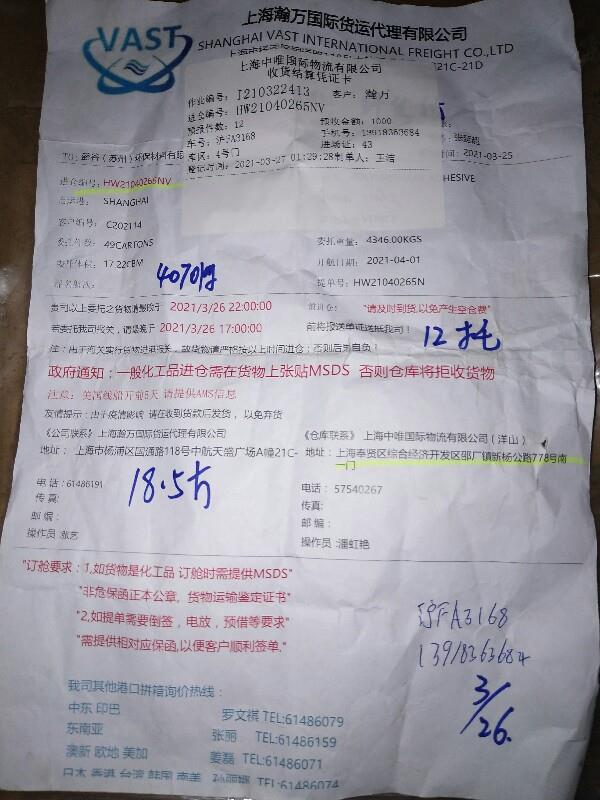 VAST
上海瀚万国际货运代理有限公司
SHANGHAI VAST INTERNATIONAL FREIGHT CO.,LTD
21C-21D
上海中唯国际物流有限公司
收货结算凭证卡
作业编号: J210322413 客户: 瀚万
进仓编号: HW21040265NV
预报件数: 12 预收金额: 1000
车号: 沪FA3168 手机号: 13918363684
库区: 4号门 进场证: 43
登记时间: 2021-03-27 01:29:28 制单人: 王浩
时间: 2021-03-25
HESIVE
进仓编号: HW21040265NV
SHANGHAI
客户编号: C202114
委托件数: 49CARTONS 委托重量: 4346.00KGS
委托体积: 17.22CBM 开航日期: 2021-04-01
提单号: HW21040265N
4070kg
贵司以上委托之货物请最晚于 2021/3/26 22:00:00 "请及时到货,以免产生空仓费"
若委托我司报关,请最晚于 2021/3/26 17:00:00 前将报送单证送抵我司!
12托
政府通知:一般化工品进仓需在货物上张贴MSDS 否则仓库将拒收货物
注意: 美国线船开前5天 请提供AMS信息
友情提示: 由于疫情影响 请在收到货款后发货,以免弃货
《公司联系》上海瀚万国际货运代理有限公司
地址: 上海市杨浦区国通路118号中航天盛广场A幢21C-
电话: 61486191
传真:
邮编:
操作员:张艺
18.5方
《仓库联系》 上海中唯国际物流有限公司(洋山)
地址: 上海奉贤区综合经济开发区邬厂镇新杨公路778号南
一门
电话: 57540267
传真:
邮编:
操作员:潘虹艳
"订舱要求: 1,如货物是化工品 订舱时需提供MSDS"
"非危保函正本公章, 货物运输鉴定证书"
"2,如提单需要倒签,电放,预借等要求"
"需提供相对应保函,以便客户顺利签单."
沪FA3168
13918363684
3/26.
我司其他港口拼箱询价热线:
中东 印巴 罗文祺 TEL:61486079
东南亚 张丽 TEL:61486159
澳新 欧地 美加 姜磊 TEL:61486071
日本 香港 台湾 韩国 南美 孙丽娜 TEL:61486074